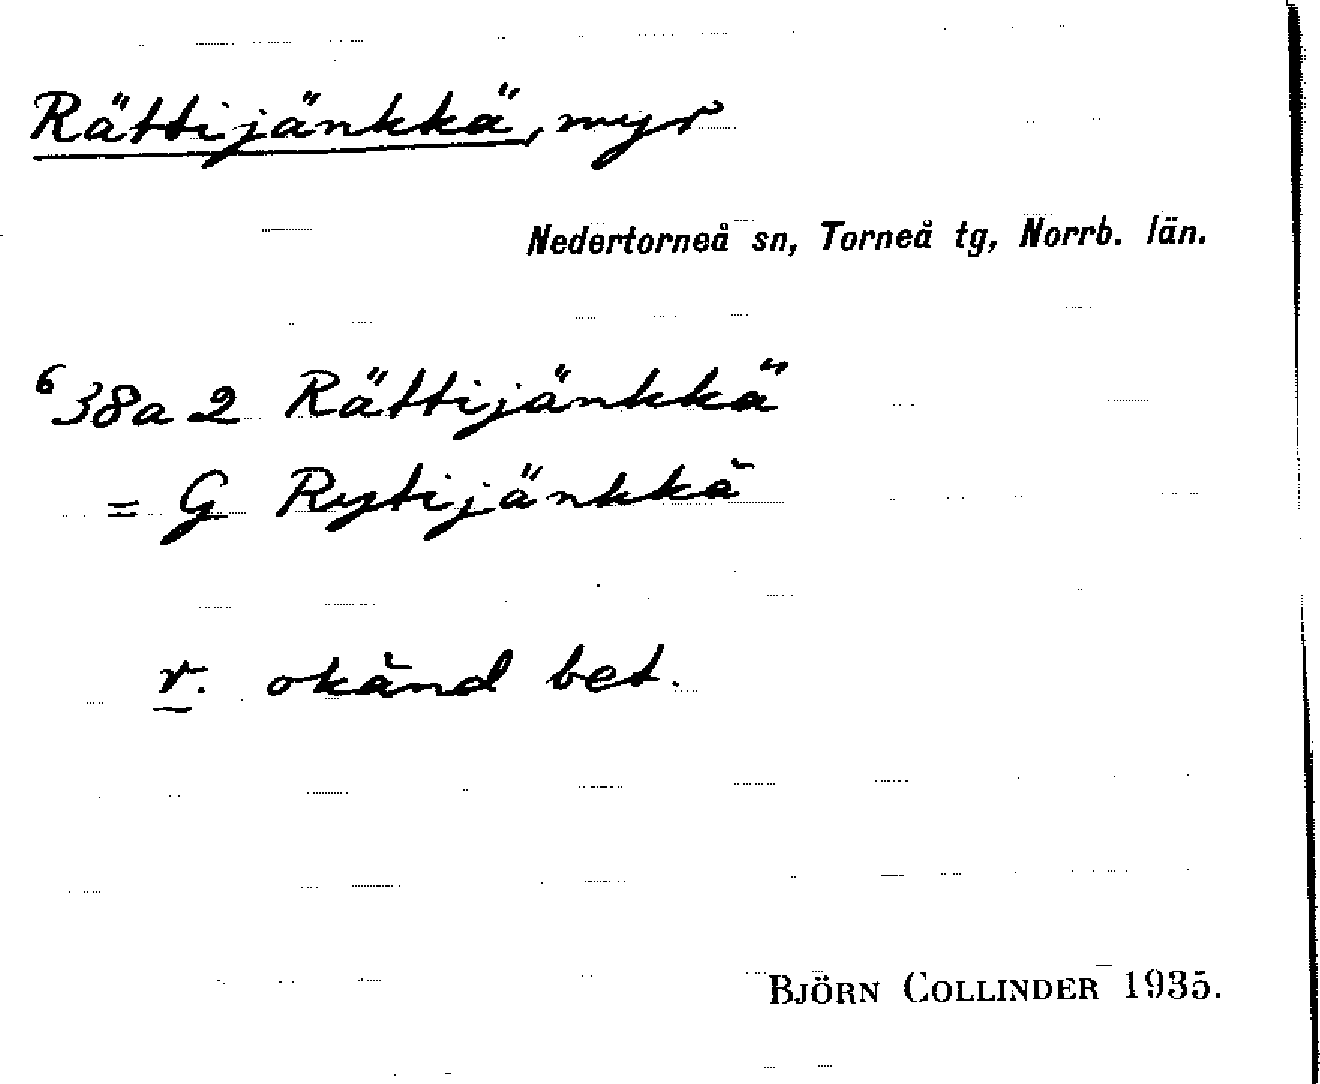 Rättijänkkä, myr
Nedertorneå sn, Torneå tg, Norrb. län.
⁶38a2 Rättijänkkä
= G Rytijänkkä
r. okänd bet.
BJÖRN COLLINDER 1935.